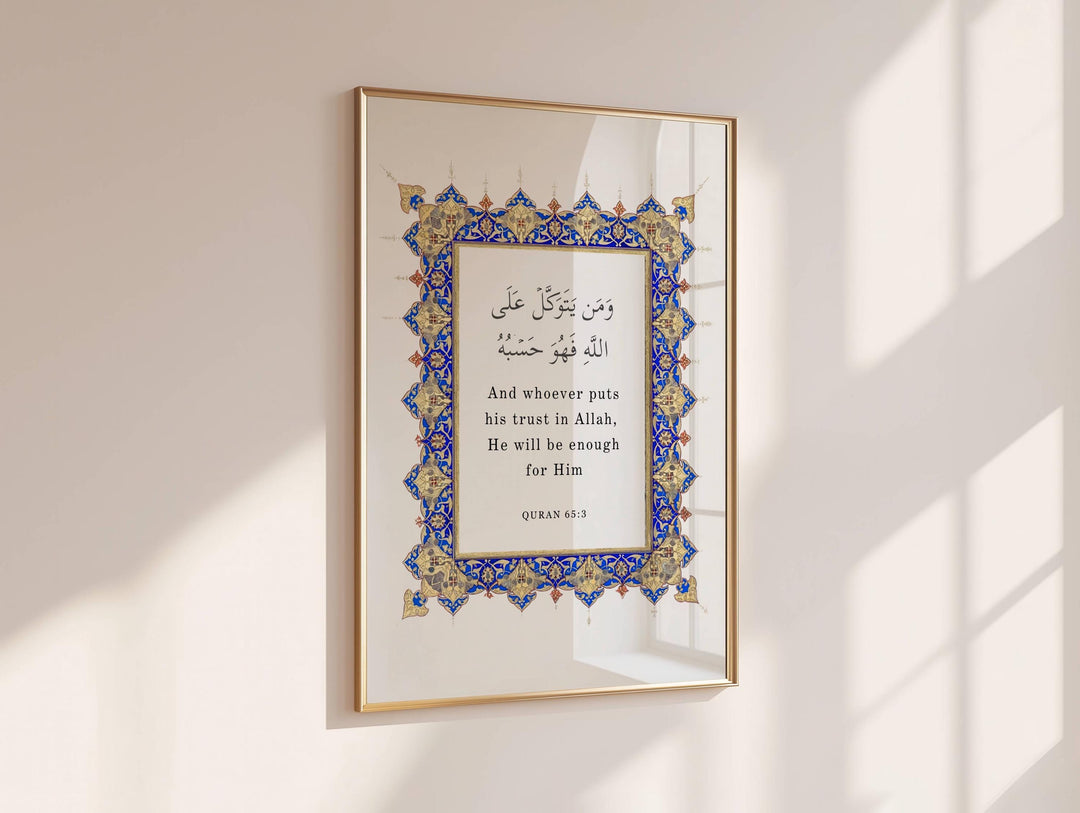 وَمَن يَتَوَكَّلۡ عَلَى
اللَّهِ فَهُوَ حَسۡبُهُۥ
And whoever puts
his trust in Allah,
He will be enough
for Him
QURAN 65:3